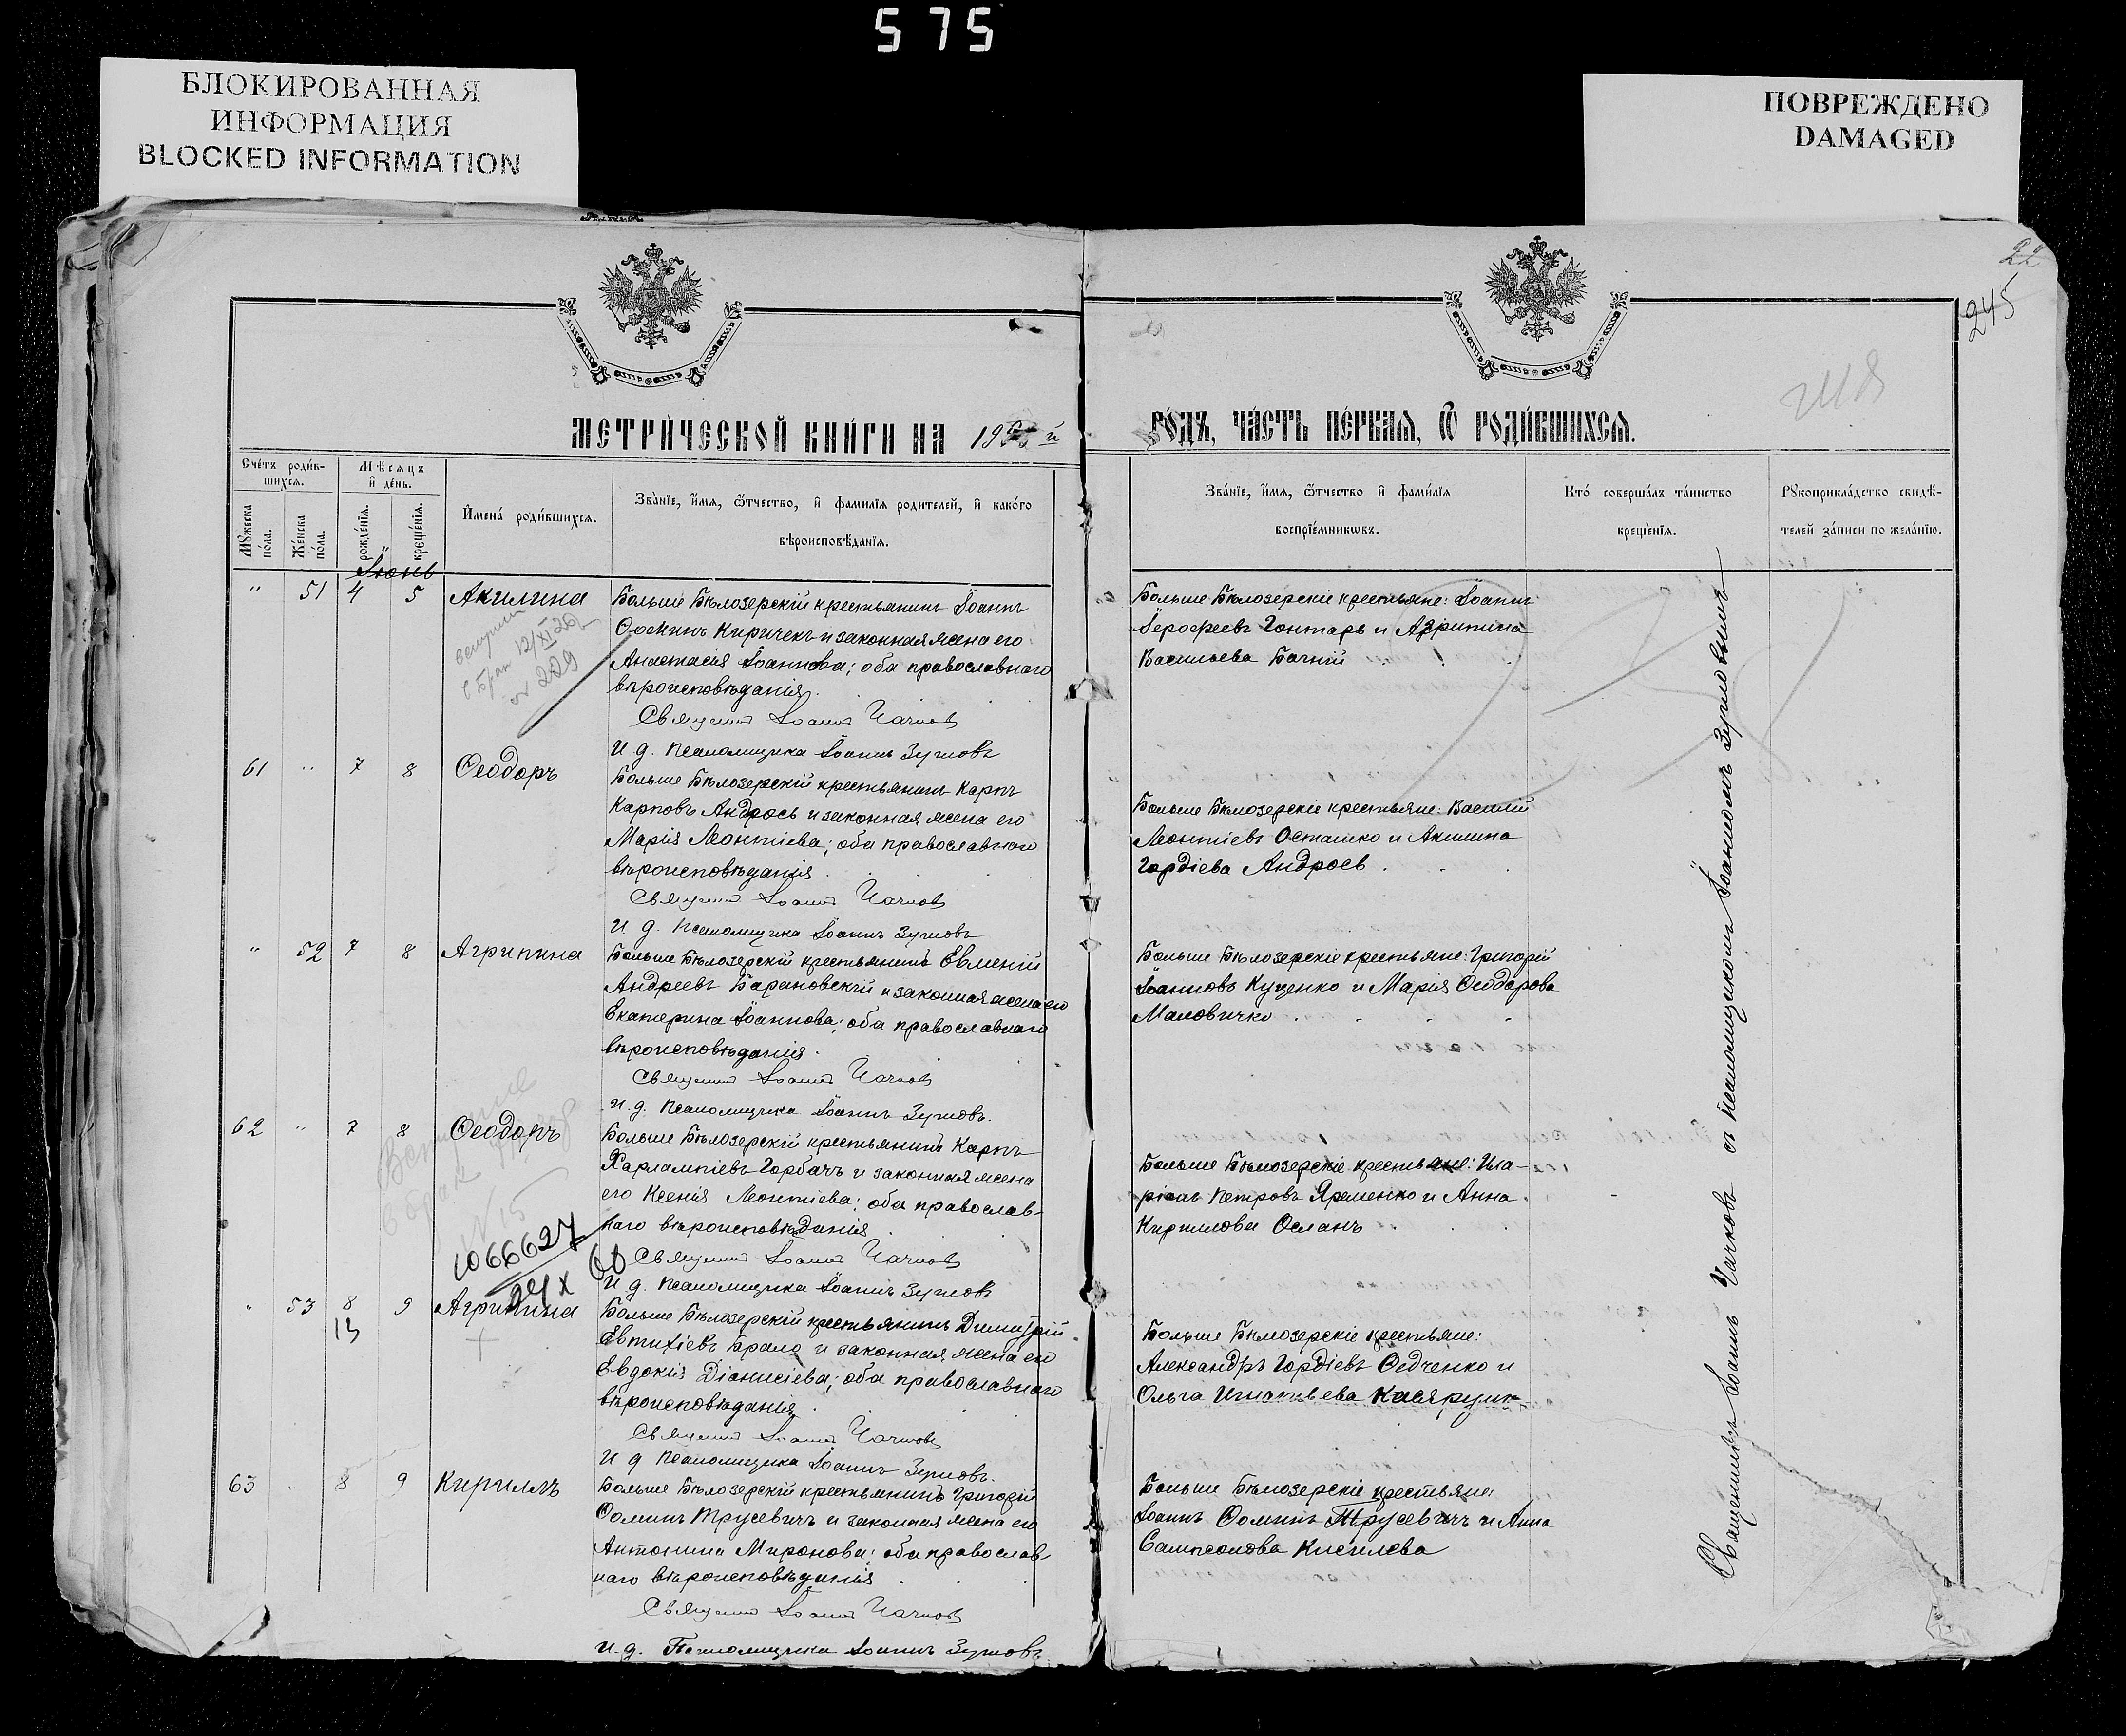 575
БЛОКИРОВАННАЯ
ИНФОРМАЦИЯ
BLOCKED INFORMATION
ПОВРЕЖДЕНО
DAMAGED
22
245
МЕТРИ́ЧЕСКОЙ КНИ́ГИ НА 19 й
ГО́ДЪ, ЧА́СТЬ ПЕ́РВАЯ, Ѿ РОДИ́ВШИХСЯ.
Сче́тъ роди́в-
шихся.
Мѣ́сяцъ
и҆ де́нь.
Мꙋ́жеска
по́ла.
Же́нска
по́ла.
рожде́нїя.
креще́нїя.
И҆мена̀ роди́вшихся.
Зва́нїе, и҆́мя, ѻ҆́тчество, и҆ фами́лїя родителей, и҆ како́го
вѣроисповѣ́данїя.
Зва́нїе, и҆́мя, ѻ҆́тчество и҆ фами́лїя
воспрїе́мникѡвъ.
Кто́ соверша́лъ та́инство
креще́нїя.
Рꙋкоприкла́дство свидѣ́-
телей за́писи по жела́нїю.
Іюнь
" 51 4 5 Акилина
Больше Бѣлозерскій крестьянинъ Іоаннъ
Ѳоминъ Киричекъ и законная жена его
Анастасія Іоаннова; оба православнаго
вѣроисповѣданія.
Священникъ Іоаннъ Чачковъ
И. д. Псаломщика Іоаннъ Зуиловъ
Больше Бѣлозерскіе крестьяне: Іоаннъ
Іероѳеевъ Гонтарь и Агрипина
Васильева Бачній
12/XI 26
№ 229
61 " 7 8 Ѳеодоръ
Больше Бѣлозерскій крестьянинъ Карпъ
Карповъ Андрось и законная жена его
Марія Леонтіева; оба православнаго
вѣроисповѣданія.
Священникъ Іоаннъ Чачковъ
И. д. Псаломщика Іоаннъ Зуиловъ
Больше Бѣлозерскіе крестьяне: Василій
Леонтіевъ Осташко и Акилина
Гордіева Андрось.
" 52 7 8 Агрипина
Больше Бѣлозерскій крестьянинъ Евменій
Андреевъ Барановскій и законная жена его
Екатерина Іоаннова; оба православнаго
вѣроисповѣданія.
Священникъ Іоаннъ Чачковъ
И. д. Псаломщика Іоаннъ Зуиловъ.
Больше Бѣлозерскіе крестьяне: Григорій
Іоанновъ Куценко и Марія Ѳеодорова
Маловичко.
62 " 7 8 Ѳеодоръ
Больше Бѣлозерскій крестьянинъ Карпъ
Харлампіевъ Горбачъ и законная жена
его Ксенія Леонтіева; оба православ-
наго вѣроисповѣданія.
Священникъ Іоаннъ Чачковъ
И. д. Псаломщика Іоаннъ Зуиловъ
Больше Бѣлозерскіе крестьяне: Ила-
ріонъ Петровъ Яременко и Анна
Кириллова Осланъ.
№ 15
1066627
24 X 60
" 53 8 9 Агрипина
13
Больше Бѣлозерскій крестьянинъ Димитрій
Евтихіевъ Брало и законная жена его
Евдокія Діонисіева; оба православнаго
вѣроисповѣданія.
Священникъ Іоаннъ Чачковъ
И. д. Псаломщика Іоаннъ Зуиловъ.
Больше Бѣлозерскіе крестьяне:
Александръ Гордіевъ Ѳедченко и
Ольга Игнатьева
63 " 8 9 Кириллъ
Больше Бѣлозерскій крестьянинъ Григорій
Ѳоминъ Трусевичъ и законная жена его
Антонина Миронова; оба православ-
наго вѣроисповѣданія.
Священникъ Іоаннъ Чачковъ
И. д. Псаломщика Іоаннъ Зуиловъ.
Больше Бѣлозерскіе крестьяне:
Іоаннъ Ѳоминъ Трусевичъ и Анна
Сампсонова Киселева
Священникъ Іоаннъ Чачковъ съ Псаломщикомъ Іоанномъ Зуиловымъ